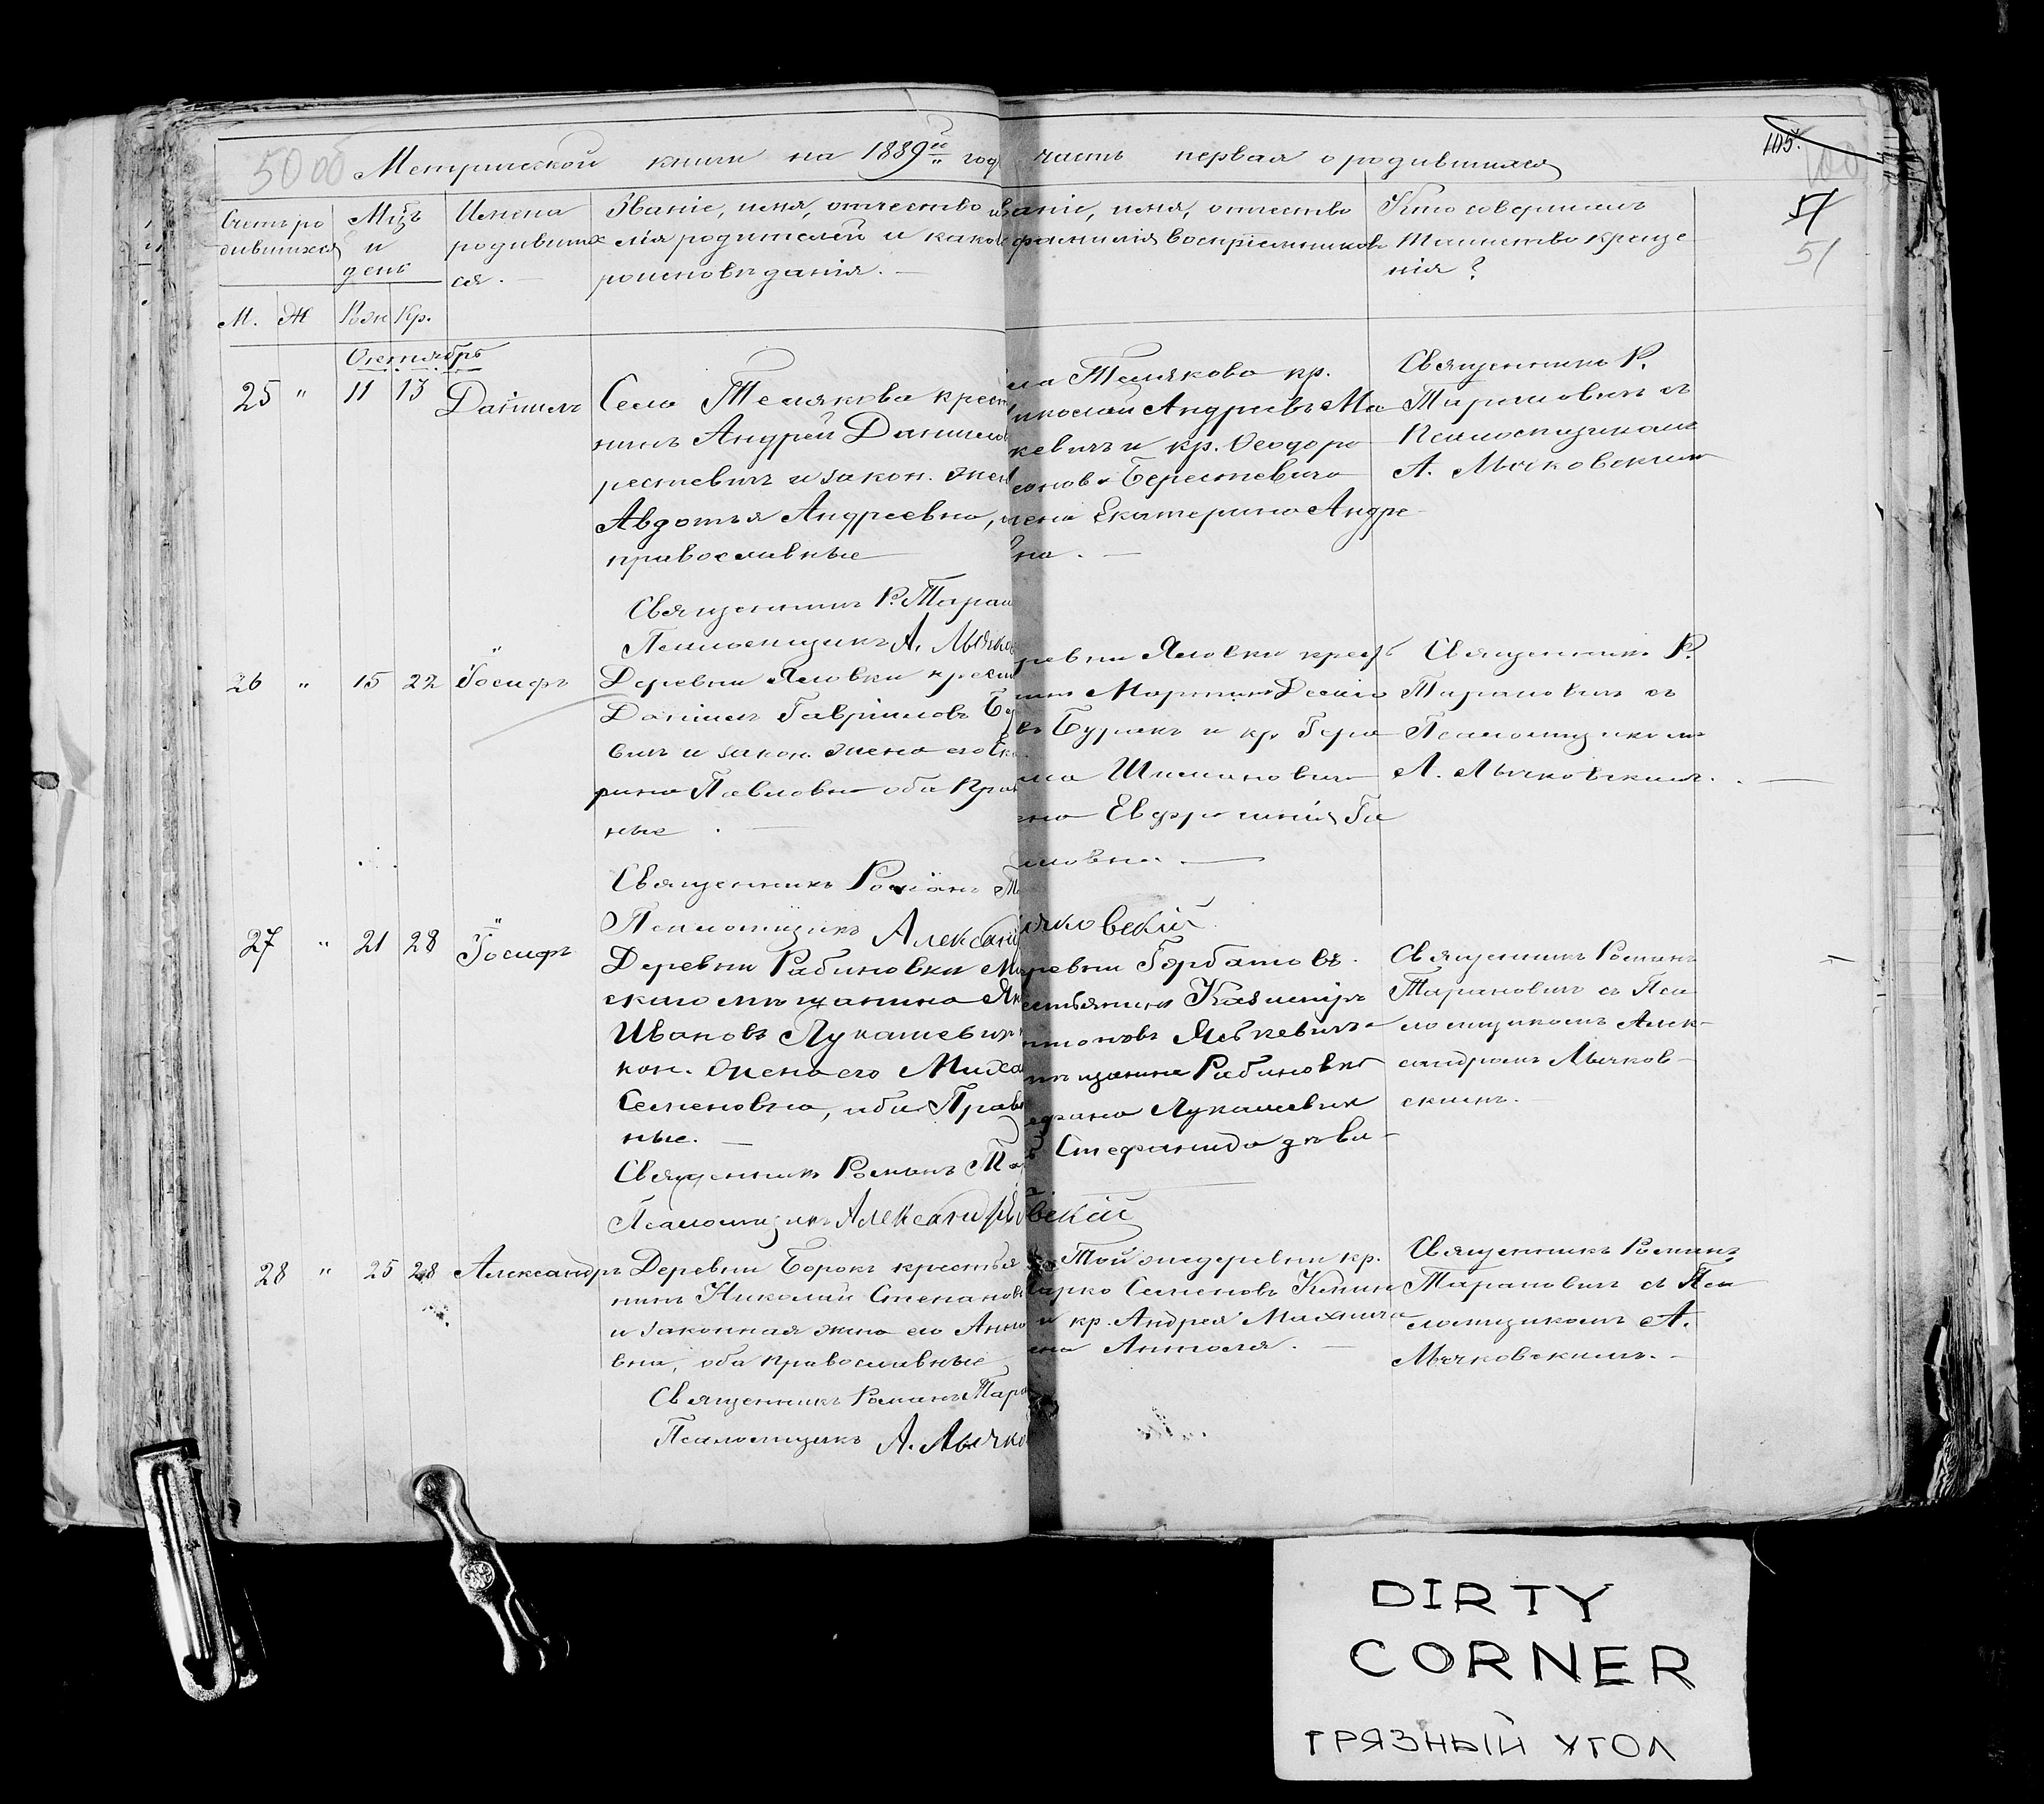 50 об Метрической книги на 1889й год часть первая о родившихся
105.
51
Счетъ ро
дившихся
Мцъ
и
день
Имена
родивших
ся. —
Званіе, имя, отчество
лія родителей и како
роисповѣданія. —
аніе, имя, отчество
фамилія воспріемниковъ
Кто совершалъ
таинство креще
нія?
М. Ж Рож Кр.
Октябрь
25 " 11 13 Даніилъ
Село Теляково крест
нинъ Андрей Данилов
рестневичъ и закон. жен
Авдотья Андреевна,
православные
Священникъ Р. Таран
Псаломщикъ А. Мычко
ла Теляково кр.
иколай Андреевъ Ма
кевичъ и кр. Ѳеодора
Берестневича
жена Екатерина Андре
вна. —
Священникъ Р.
Тарановичъ съ
Псаломщикомъ
А. Мычковскимъ
26 " 15 22 Іосифъ
Деревни Яловки крест
Даніилъ Гавріиловъ
вичъ и закон. жена его Ека
рина Павловна оба Прав
ные . —
Священникъ Романъ Т
Псаломщикъ Александ
ревни Яловки крест
Мартинъ
въ Буракъ и кр. Гера
ма Шимановича
жена Евфросинія Га
иловна. —
чковскій
Священникъ Р.
Тарановичъ съ
Псаломщикомъ
А. Мычковскимъ.
27 " 21 28 Іосифъ
Деревни Рабиновки М
скаго мѣщанина Як
Ивановъ Лукашевичъ
кон. жена его Миха
Семеновна, оба Правос
ные. —
Священникъ Романъ Тар
Псаломщикъ Александръ
ревни Горбатовъ.
естьянинъ Казиміръ
нтоновъ Яцкевичъ
мѣщанина Рабиновки
ефана Лукашевича
Стефанида дѣви
вскій
Священникъ Романъ
Тарановичъ съ Пса
ломщикомъ Алек-
сандромъ Мычков-
скимъ. —
28 " 25 28 Александръ
Деревни Борокъ крестья
нинъ Николай Степановъ
и законная жена его Анна
вна, оба православные
Священникъ Романъ Тара
Псаломщикъ А. Мычко
Той же деревни кр.
арко Семеновъ
и кр. Андрея Махнача
жена Антоля. —
Священникъ Романъ
Тарановичъ съ Пса
ломщикомъ А.
Мычковскимъ. —
DIRTY
CORNER
ГРЯЗНЫЙ УГОЛ